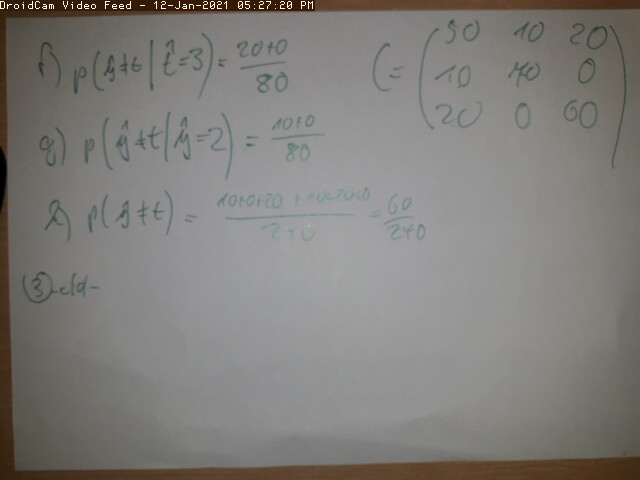 DroidCam Video Feed - 12-Jan-2021 05:27:20 PM
f) p(ŷ≠t | t̂=3) = 20+0/80
C = (50 10 20
10 70 0
20 0 60)
g) p(ŷ≠t | ŷ=2) = 10+0/80
h) p(ŷ≠t) = 10+0+20+10+20+0/240 = 60/240
③